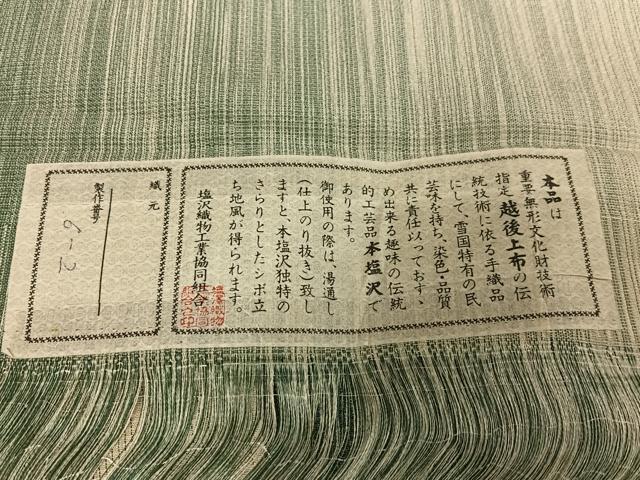 本品は
重要無形文化財技術
指定越後上布の伝
統技術に依る手織品
にして、雪国特有の民
芸味を持ち、染色・品質
共に責任以っておすゝ
め出来る趣味の伝統
的工芸品本塩沢で
あります。
御使用の際は、湯通し
(仕上のり抜き)致し
ますと、本塩沢独特の
さらりとしたシボ立
ち地風が得られます。
塩沢織物工業協同組合
塩沢織物
工業協同
組合之印
織元
製作番号
6-2